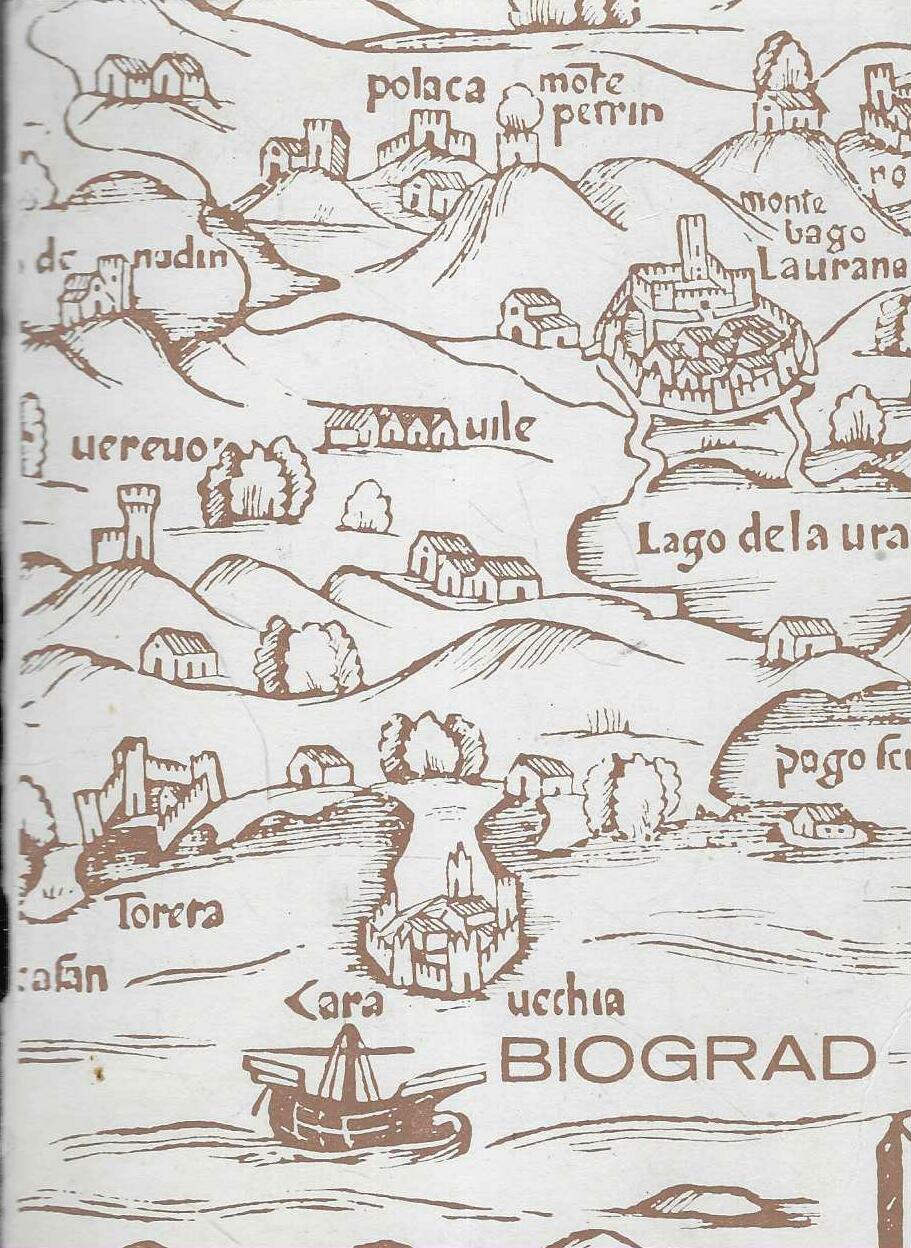 polaca
mōte
perrin
monte
bago
Laurana
de nadin
uile
Lago de la ura
pago
Torera
Zara uecchia
BIOGRAD